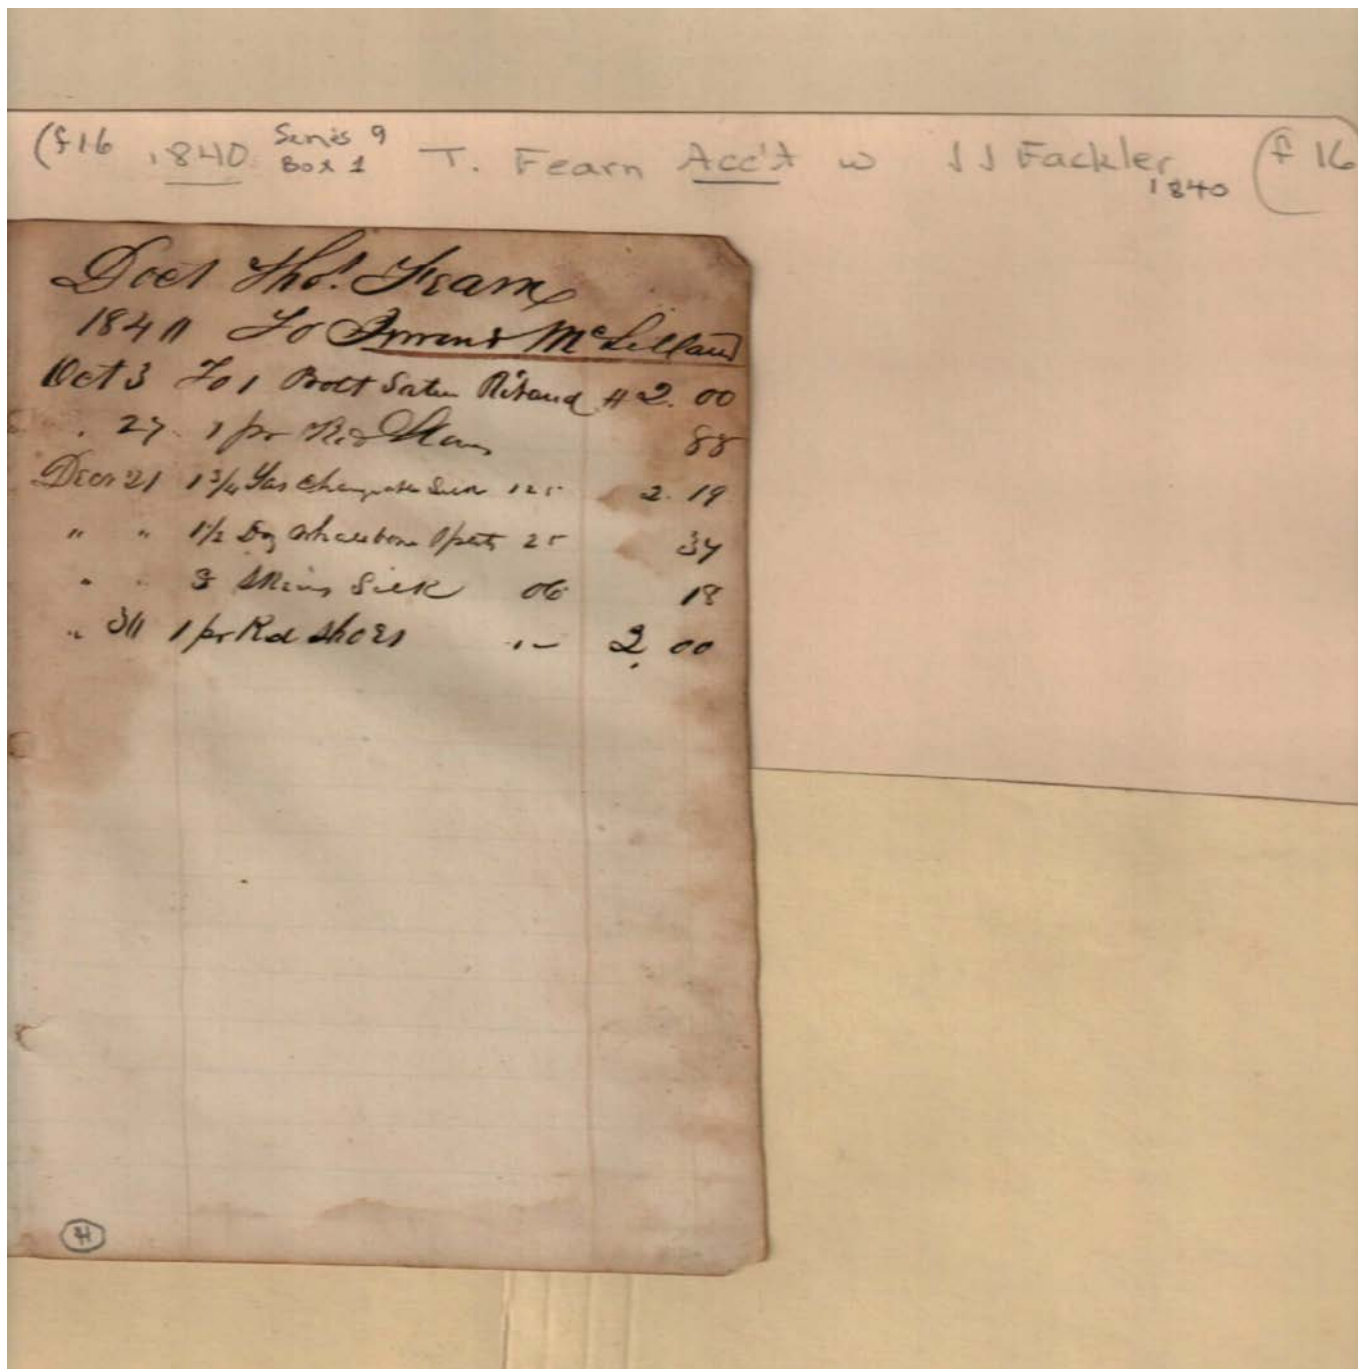 (f16 1840 Series 9 Box 1 T. Fearn Acc't w J J Fackler 1840 (f 16
Doct Tho.s Fearn
1840 To McLelland
Oct 3 To 1 Bolt Satin Riband $2.00
" 27 1 pr Kid 88
Decr 21 1 3/4 Yds Changeable Silk 125 2.19
" " 1 1/2 Doz Whalebone Splits 25 37
" " 3 Skeins Silk 06 18
" 30 1 pr Kid Shoes "- 2.00